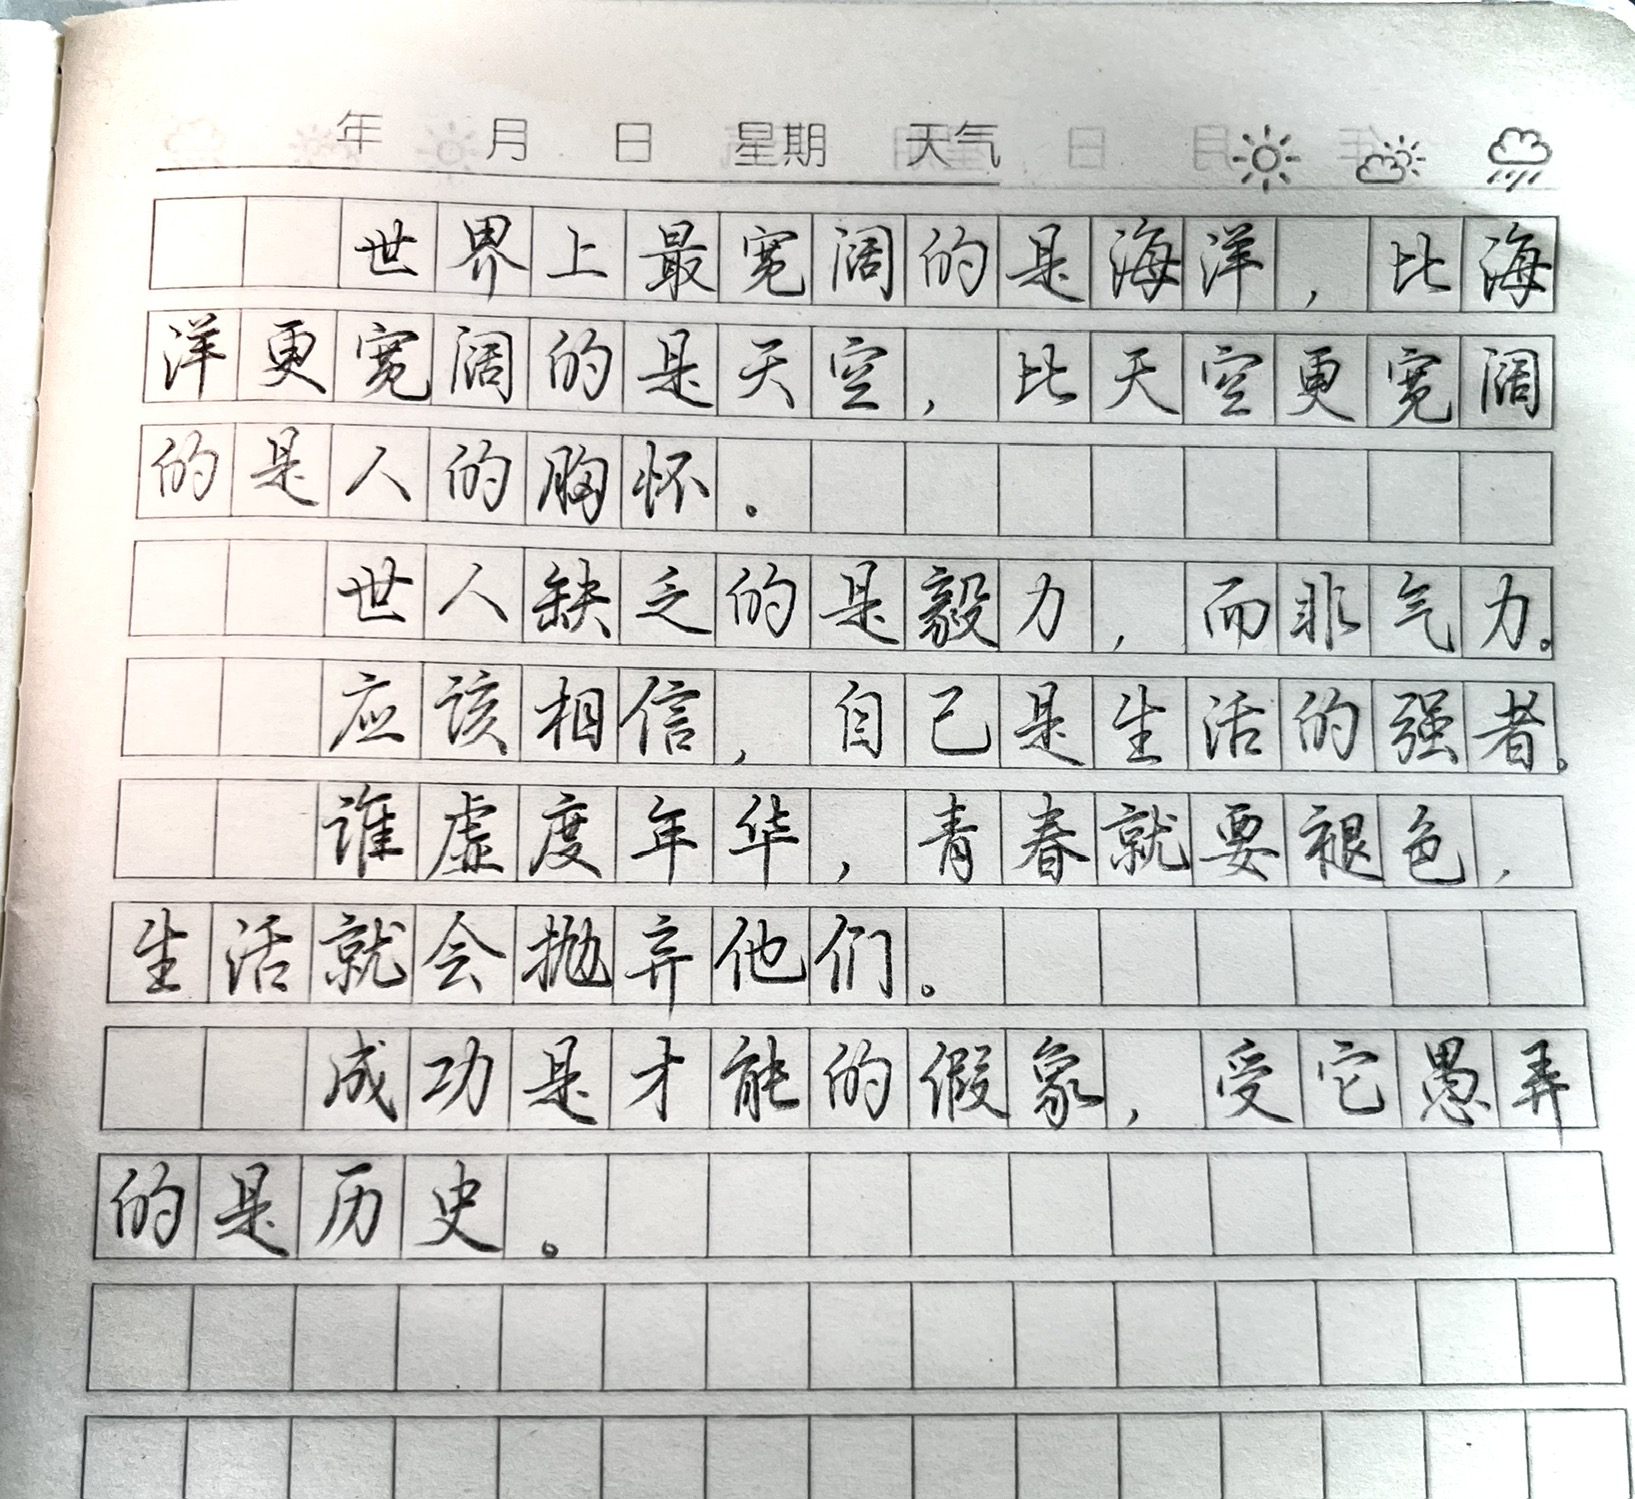 年 月 日 星期 天气
世界上最宽阔的是海洋，比海
洋更宽阔的是天空，比天空更宽阔
的是人的胸怀。
世人缺乏的是毅力，而非气力。
应该相信，自己是生活的强者。
谁虚度年华，青春就要褪色，
生活就会抛弃他们。
成功是才能的假象，受它愚弄
的是历史。